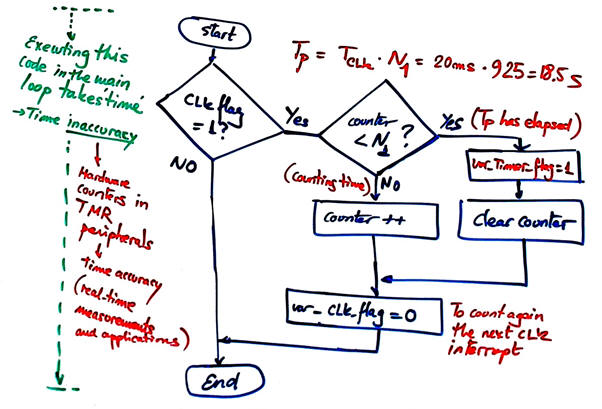 Executing this
code in the main
loop takes 'time'
→ Time inaccuracy
Hardware
counters in
TMR
peripherals
time accuracy
(real-time
measurements
and applications)
start
CLK flag
= 1?
Yes
NO
Tp = TCLK · N1 = 20ms · 925 = 18.5 s
counter
< N1 ?
Yes (Tp has elapsed)
NO
(counting time)
var_Timer_flag=1
counter ++
clear counter
var_CLK_flag = 0
To count again
the next CLK
interrupt
End